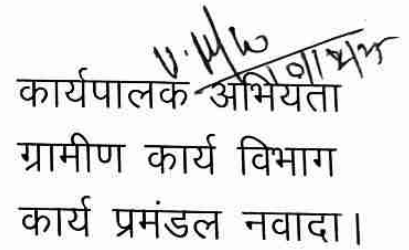 कार्यपालक अभियंता
ग्रामीण कार्य विभाग
कार्य प्रमंडल नवादा।